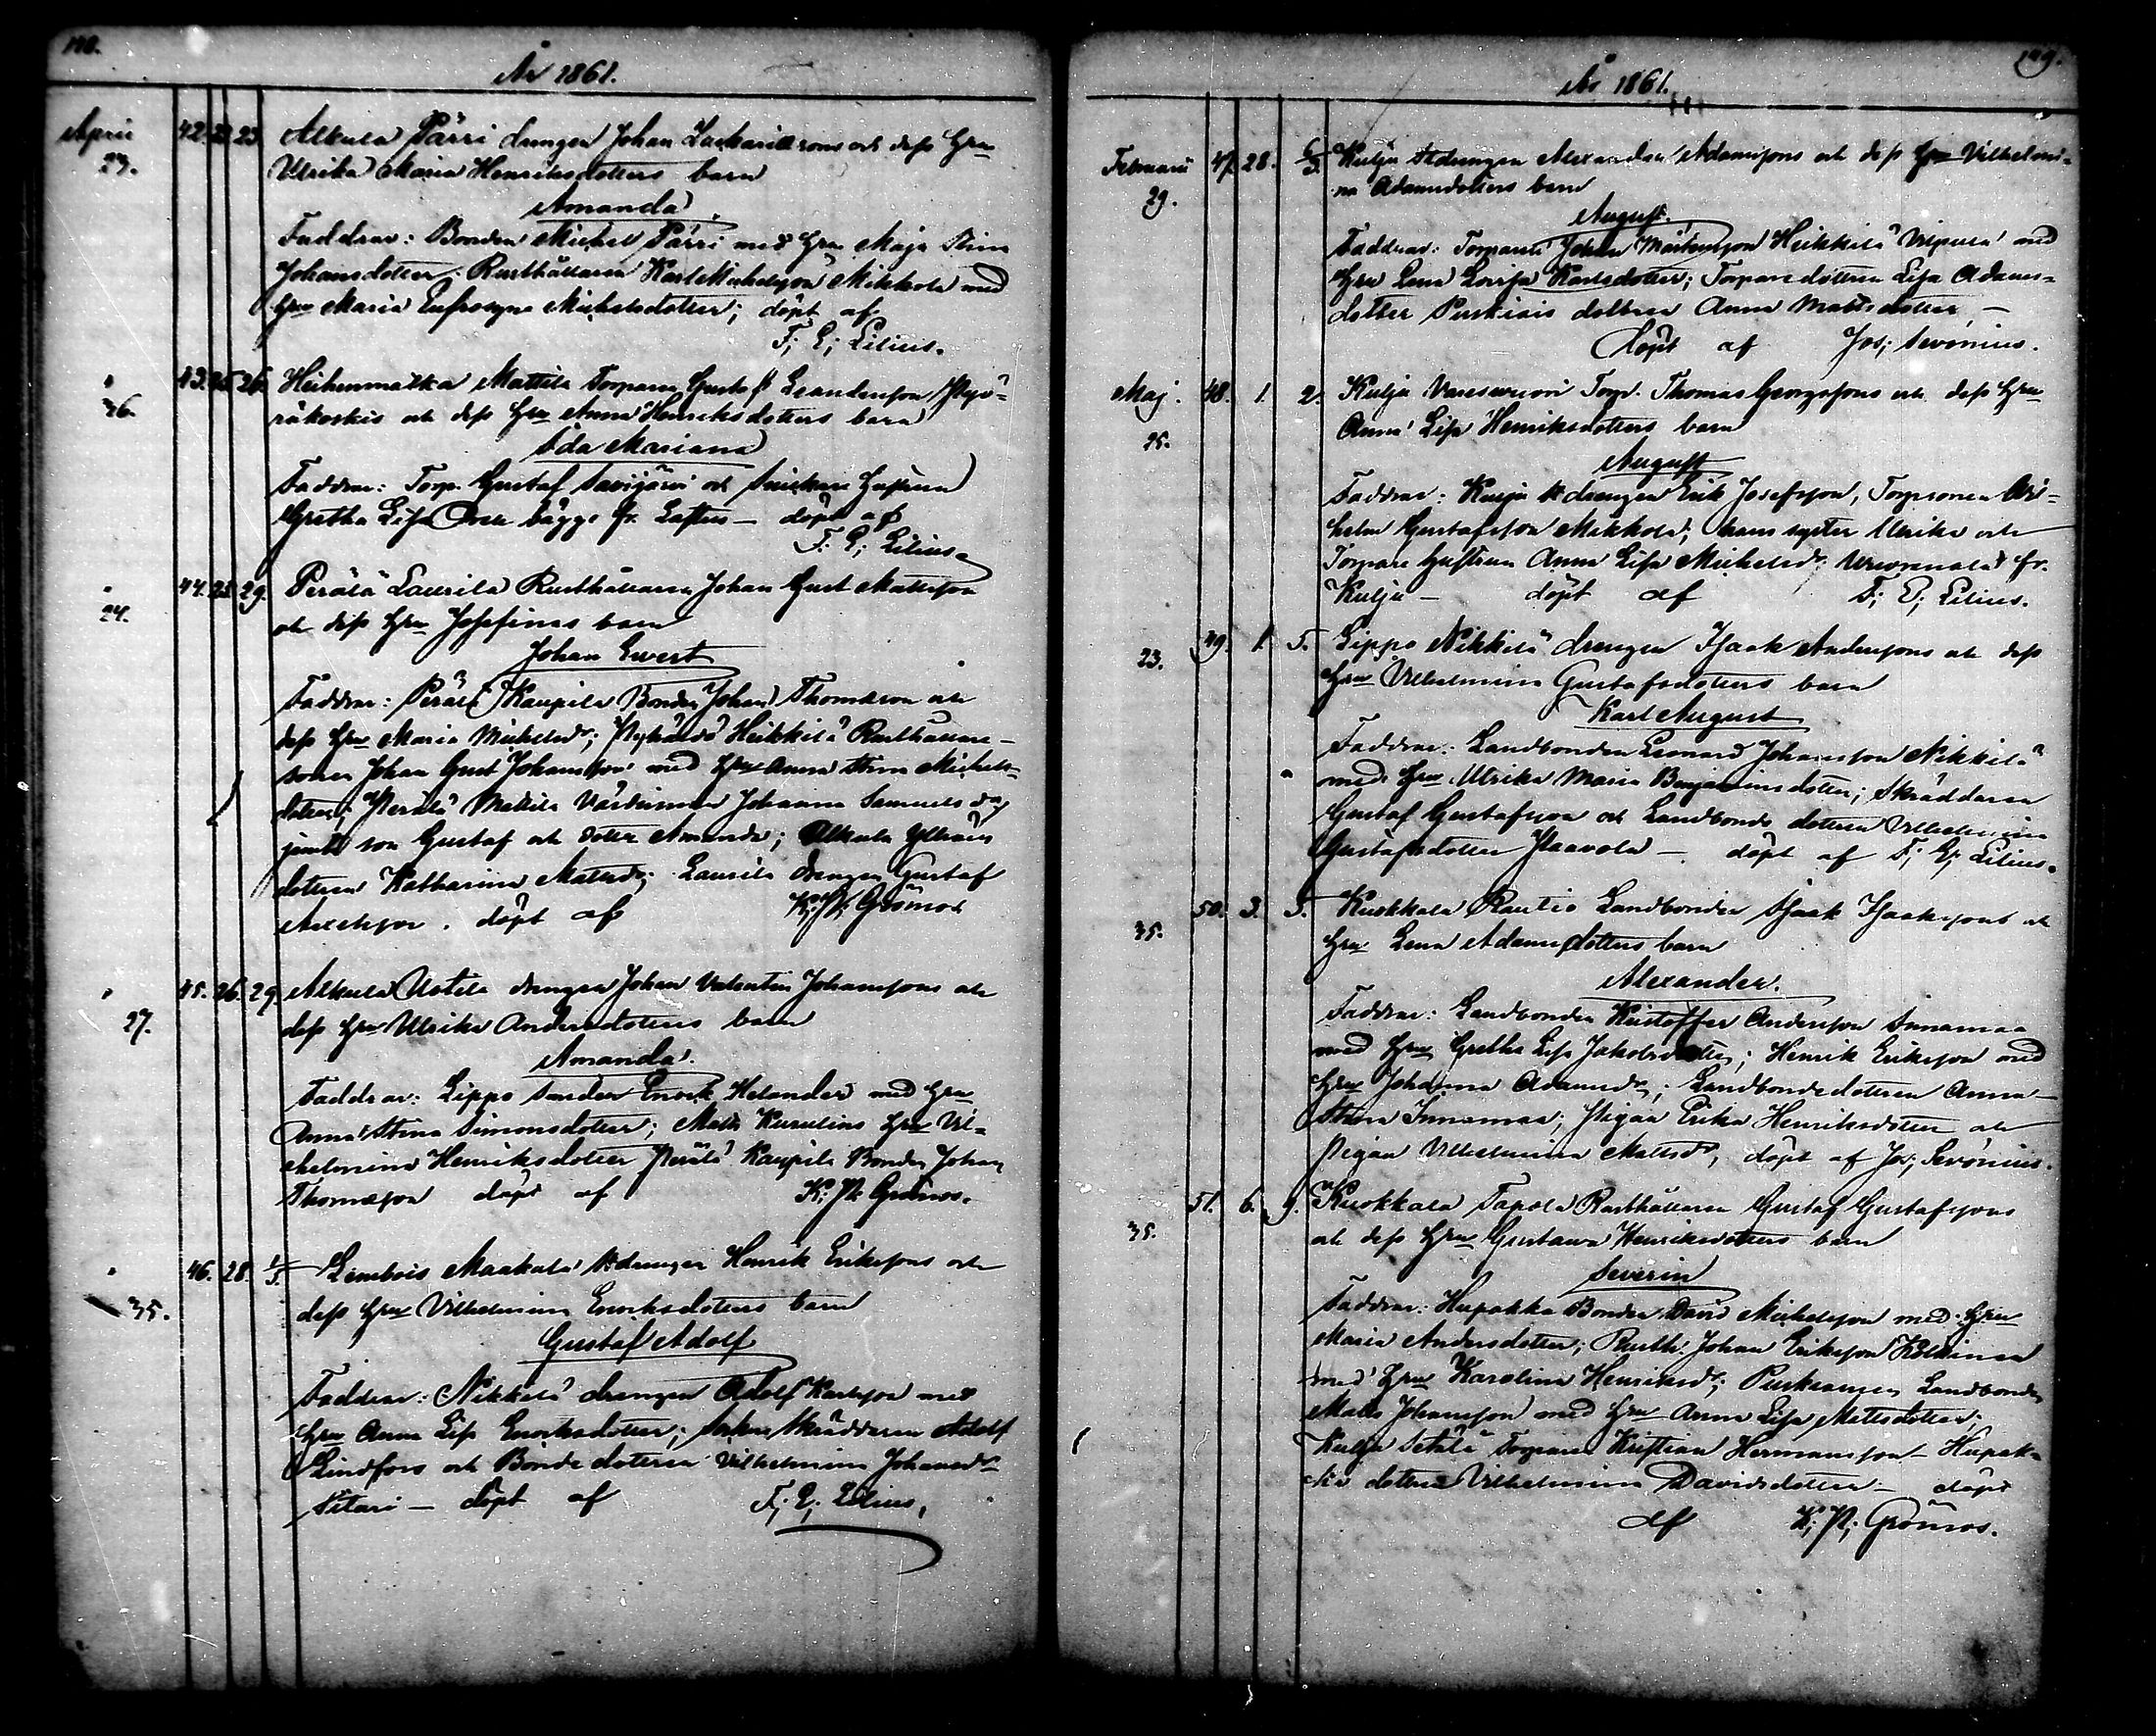 År 1861.
April 42. 22. 23. Alkula Pärri drengen Johan Zackarissons och dess Hru
23. Ulrika Maria Henriksdotters barn
Amanda
Faddrar: Bonden Michel Pärri med Hru Maja Stina
Johansdotter; Rusthållaren Karl Michelsson Mikkola med
Hru Maria Eufrosyne Michelsdotter; döpt af
F; E; Lilius.
43. 25. 26. Mattila Torparen Gustaf Leanderssons
36. och dess Hru Anna Henriksdotters barn
Ida Mariana
Faddrar: Torp. Gustaf Savijärvi och Snickare Hustrun
Gretha Lisa bägge fr. döpt af
F: E; Lilius
44. 29. Perälä Laurila Rusthållaren Johan Gust Mattsson
24. och dess Hru Josefinas barn
Johan Evert
Faddrar: Perälä Kaupila Bonden Johan Thomasson och
dess Hru Maria Michelsdr; Heikkilä Rusthållare-
sonen Johan Gust Johansson med Hru Anna Stina Michels-
dotter; Perälä Mattila Värdinnan Johanna Samuelsdr
jemte son Gustaf och dotter Amanda; Alkula
dottren Katharina Mattsdr; Laurila drengen Gustaf
Axelsson. döpt af K; P; Grönros
45. 26. 29. Alkula Uotila drengen Johan Valentin Johanssons och
27. dess Hru Ulrika Andersdotters barn
Amanda.
Faddrar: Lippo Enok Helander med Hru
Anna Stina Simonsdotter; Matts Hru Vil-
helmina Henriksdotter Perälä Kaupila Bonden Johan
Thomasson döpt af K; P; Grönros.
46. 28. 1/5. Lembois Maakala drengen Henrik Erikssons och
35. dess Hru Vilhelmina Enoksdotters barn
Gustaf Adolf
Faddrar: Nikkilä drengen Adolf Karlsson med
Hru Anna Lisa Enoksdotter; Skräddaren Adolf
Lindfors och Bonde dottren Vilhelmina Johansdr
döpt af F; E; Lilius,
149.
År 1861.
Februarii 47. 28. 6/5. Kulju drengen Alexander Adamssons och dess Hru Vilhelmi-
29. na Adamsdotters barn
August.
Faddrar: Torparen Johan Mårtensson Heikkilä med
Hru Lena Lovisa Karlsdotter; Torpare dottren Lisa Adams-
dotter dottren Anna Mattsdotter, —
döpt af Jos; Sevonius.
Maj. 48. 1. 2. Kulju Torp. Thomas Georgssons och dess Hru
25. Anna Lisa Henriksdotters barn
August
Faddrar: Kulju drengen Erik Josefsson, Torpsonen Vil-
helm Gustafsson Mikkola; hans syster Ulrika och
Torpare Hustrun Anna Lisa Michelsdr. fr.
Kulju — döpt af F; E; Lilius.
49. 1. 5. Lippo Nikkilä drengen Isaak Anderssons och dess
23. Hru Vilhelmina Gustafsdotters barn
Karl August
Faddrar: Landbonden Leonard Johansson Nikkilä
med Hru Ulrika Maria Benjaminsdotter; Skräddaren
Gustaf Gustafsson och Landbonde dottren Vilhelmina
Gustafsdotter Paavola — döpt af F; E; Lilius.
50. 3. 5. Kuokkala Rautio Landbonden Isaak Isaakssons och
35. Hru Lena Adamsdotters barn
Alexander.
Faddrar: Landbonden Kristoffer Andersson Innamaa
med Hru Gretha Lisa Jakobsdotter; Henrik Eriksson med
Hru Johanna Adamsdr; Landbonde dottren Anna
Stina Innamaa; Pigan Erika Henriksdotter och
Pigan Vilhelmina Mattsdr, döpt af Jos; Sevonius.
51. 6. 9. Kuokkala Tapola Rusthållaren Gustaf Gustafssons
35. och dess Hru Gustava Henriksdotters barn
Severin
Faddrar: Hupakka Bonden David Michelsson med Hru
Maria Andersdotter; Rusth. Johan Eriksson
med Hru Karolina Henriksdr; Landbonden
Matts Johansson med Hru Anna Lisa Mattsdotter;
Kulju Setälä Torparen Kristian Hermansson — Hupak-
ka dottren Vilhelmina Davidsdotter — döpt
af K; P; Grönros.